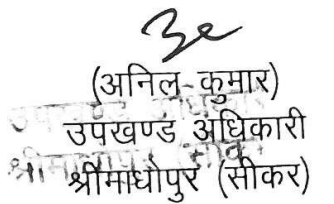 (अनिल कुमार)
उपखण्ड अधिकारी
श्रीमाधोपुर (सीकर)